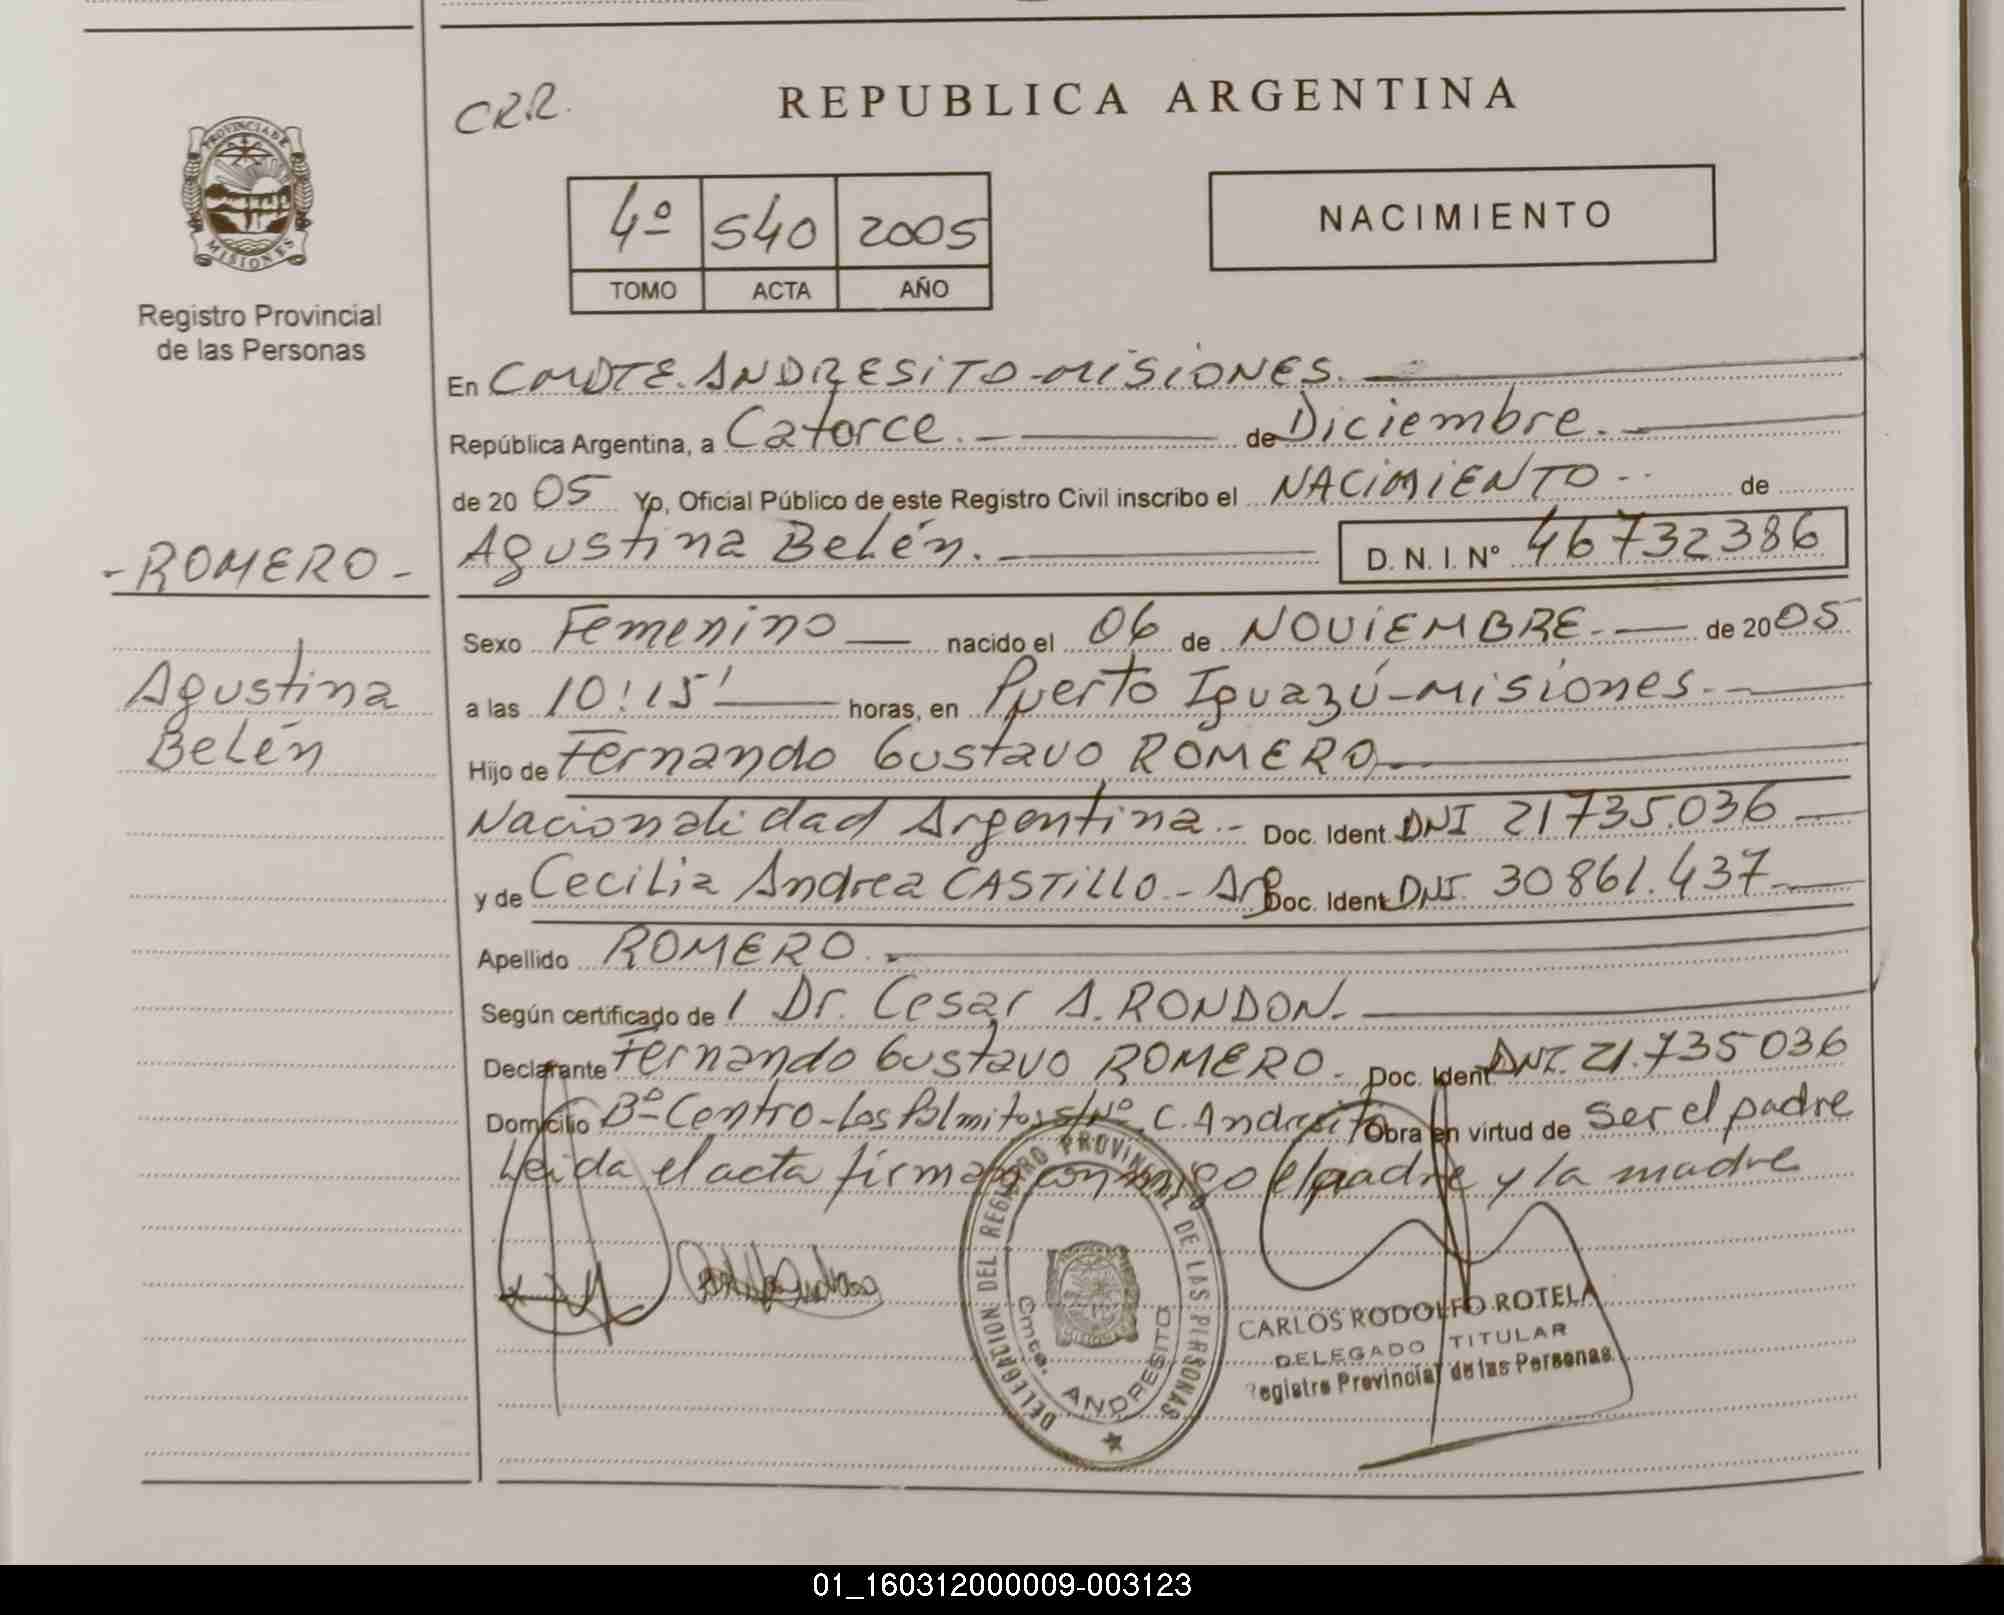 CRR.
REPUBLICA ARGENTINA
PROVINCIA DE
MISIONES
4º 540 2005
TOMO ACTA AÑO
NACIMIENTO
Registro Provincial
de las Personas
En CMDTE. ANDRESITO-MISIONES.
República Argentina, a Catorce. de Diciembre.
de 20 05 Yo, Oficial Público de este Registro Civil inscribo el NACIMIENTO de
-ROMERO-
Agustina Belén. D. N. I. Nº 46732386
Sexo Femenino nacido el 06 de NOVIEMBRE. de 20 05
Agustina
Belén
a las 10:15' horas, en Puerto Iguazú-Misiones.
Hijo de Fernando Gustavo ROMERO
Nacionalidad Argentina.- Doc. Ident. DNI 21735.036
y de Cecilia Andrea CASTILLO - Arg Doc. Ident. DNI. 30861.437
Apellido ROMERO.
Según certificado de / Dr. Cesar A. RONDON.
Declarante Fernando Gustavo ROMERO. Doc. Ident DNI. 21.735036
Domicilio Bº Centro-Los Palmitos s/Nº C. Andresito Obra en virtud de ser el padre
Leida el acta firman conmigo el padre y la madre
DELEGACION DEL REGISTRO PROVINCIAL DE LAS PERSONAS
Cmte. ANDRESITO
CARLOS RODOLFO ROTELA
DELEGADO TITULAR
Registro Provincial de las Personas
01_160312000009-003123